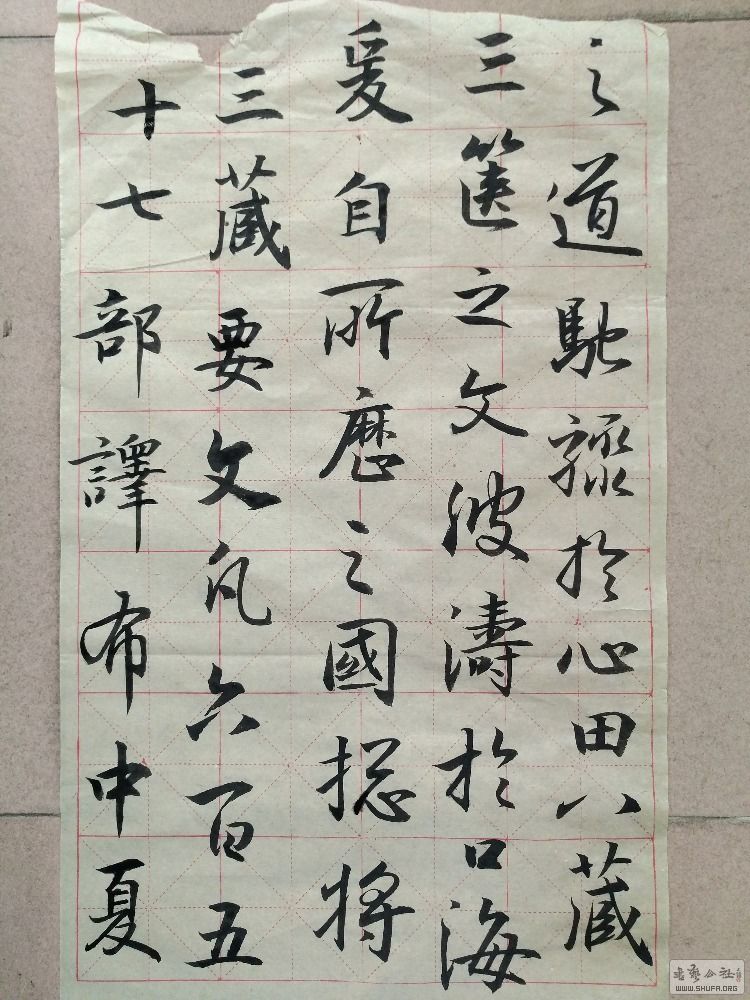 之道馳驟於心田八藏
三篋之文波濤於口海
爰自所歷之國揔將
三藏要文凡六百五
十七部譯布中夏
WWW.SHUFA.ORG